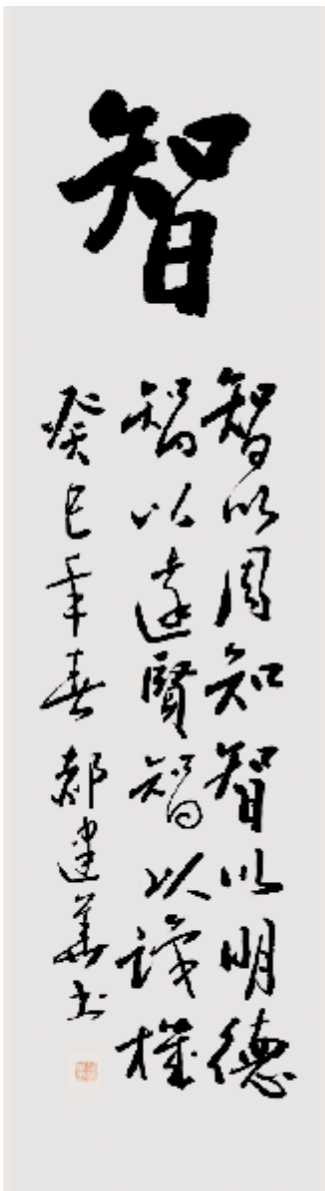 智
智以周知智以明德
智以達賢智以識機
癸巳年春郝建书